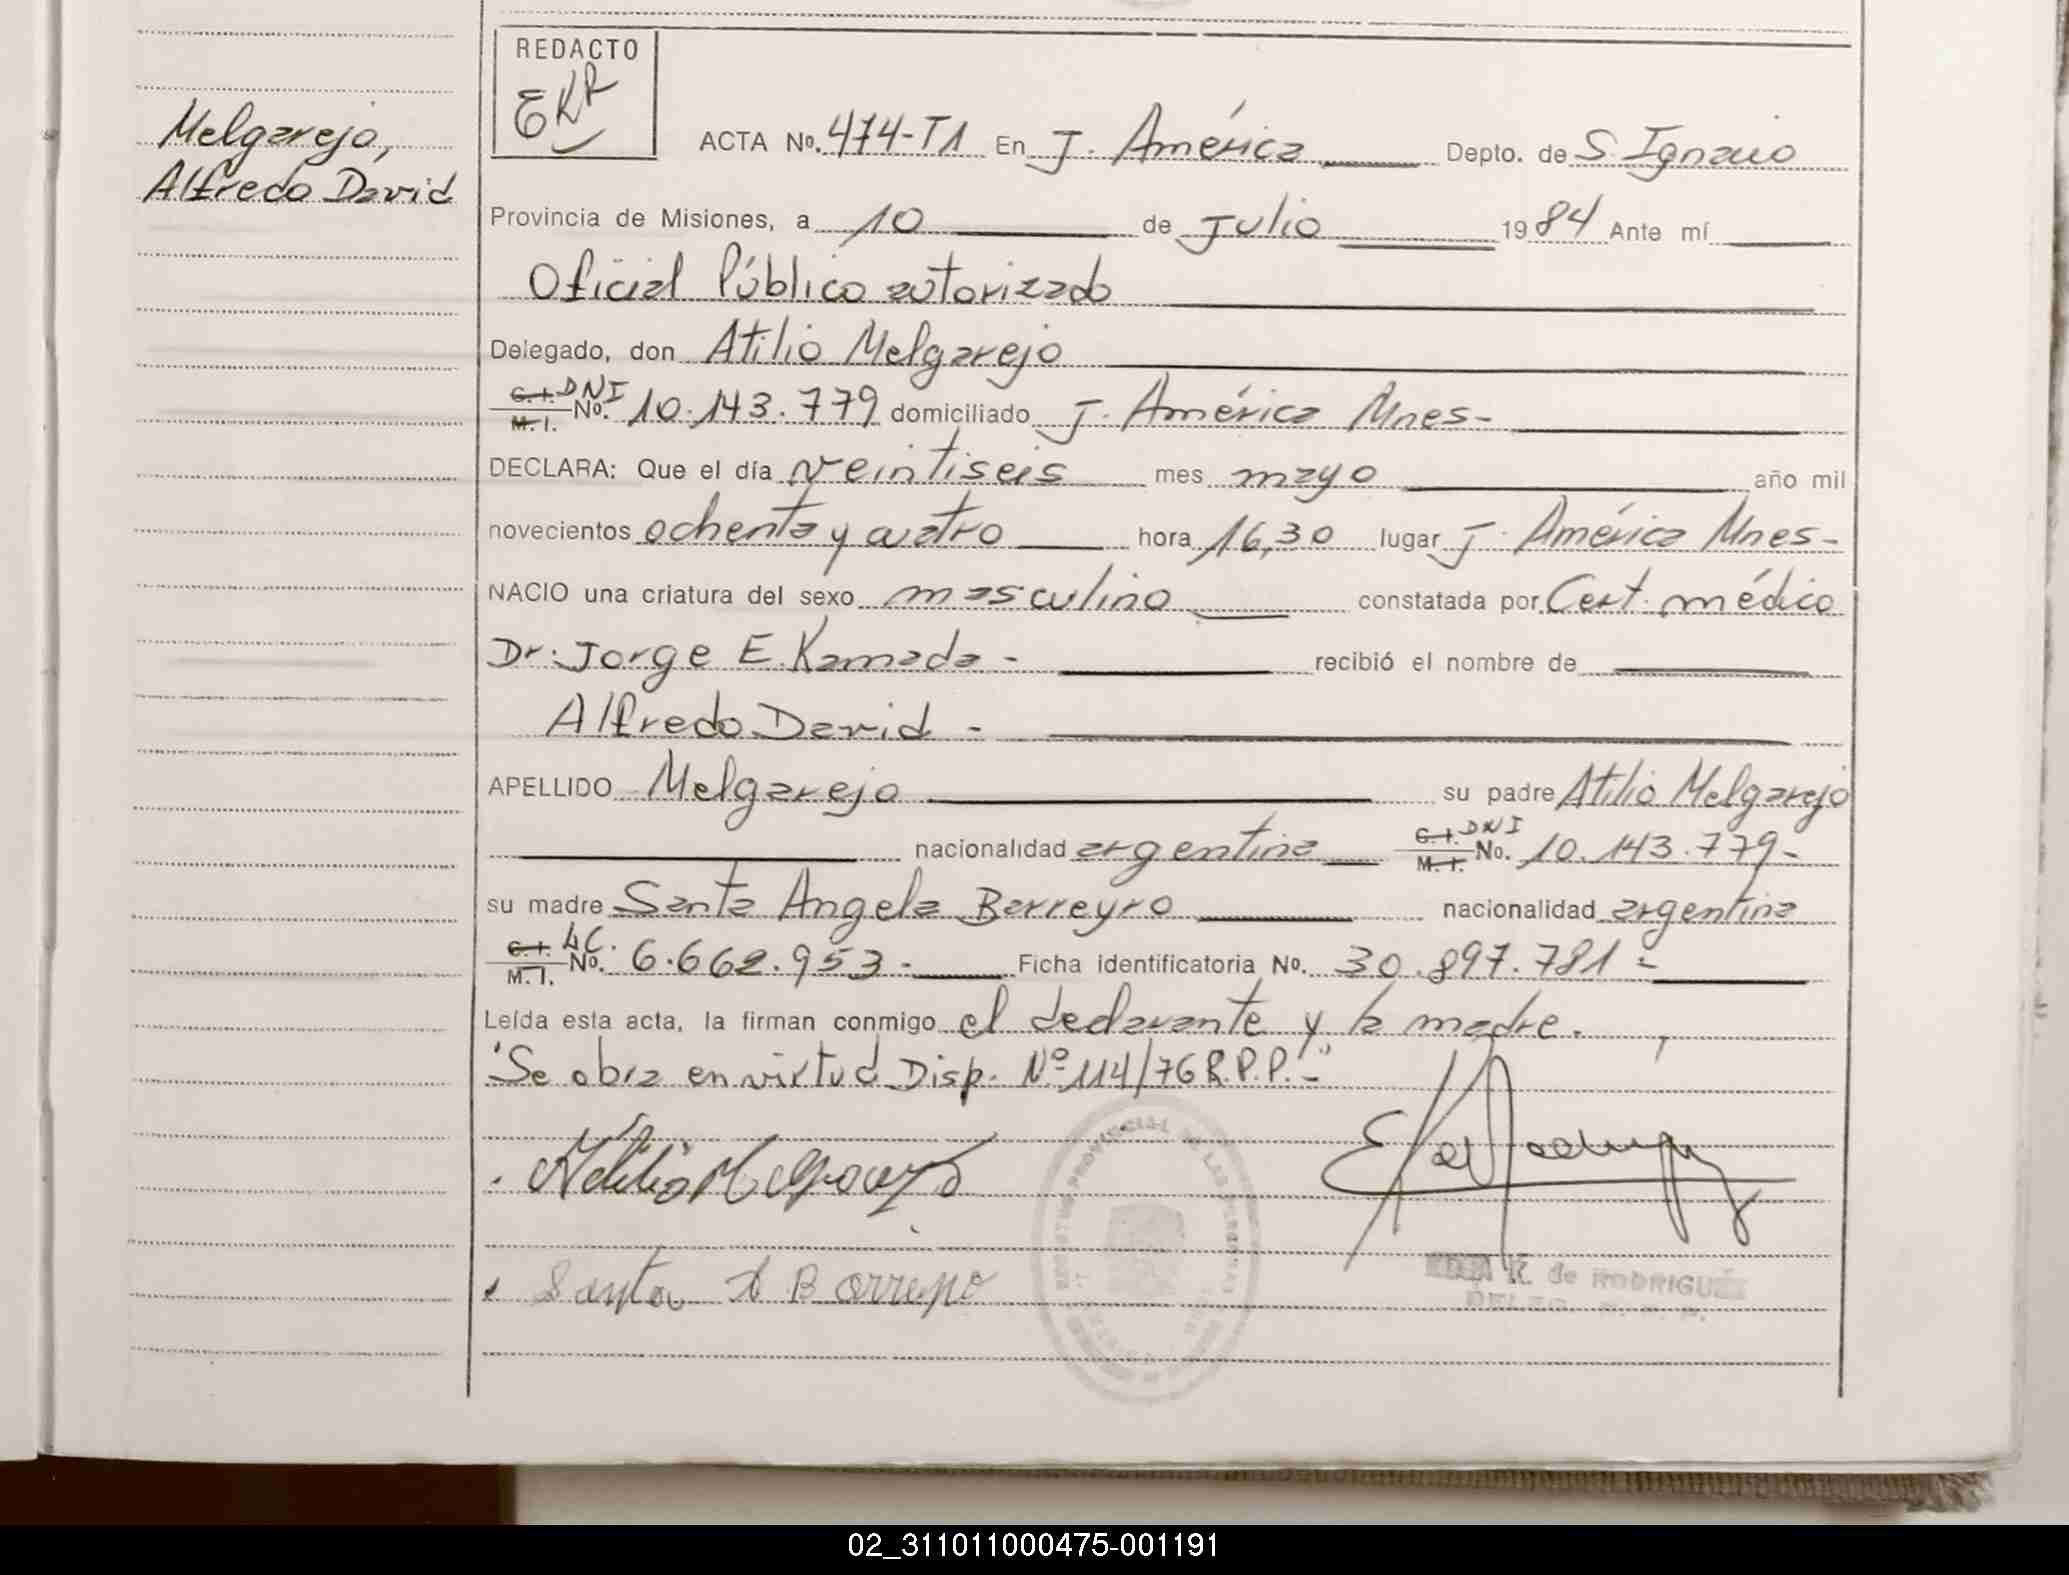 Melgarejo,
Alfredo David
REDACTO
EKR
ACTA No. 474-T1 En J. América Depto. de S. Ignacio
Provincia de Misiones, a 10 de Julio 1984 Ante mí
Oficial Público autorizado
Delegado, don Atilio Melgarejo
C.I. DNI
M.I. No. 10.143.779 domiciliado J. América Mnes-
DECLARA: Que el día veintiseis mes mayo año mil
novecientos ochenta y cuatro hora 16,30 lugar J. América Mnes-
NACIO una criatura del sexo masculino constatada por Cert. médico
Dr. Jorge E. Kamada - recibió el nombre de
Alfredo David -
APELLIDO Melgarejo su padre Atilio Melgarejo
nacionalidad argentina C.I. DNI M.I. No. 10.143.779-
su madre Santa Angela Barreyro nacionalidad argentina
C.I. LC. M.I. No. 6.662.953.- Ficha identificatoria No. 30.897.781.-
Leída esta acta, la firman conmigo el declarante y la madre.
"Se obra en virtud Disp. Nº 114/76 R.P.P."-
Atilio Melgarejo
Santa A Barreyro
K. de RODRIGUEZ
DELEG. R. P. P.
REGISTRO PROVINCIAL DE LAS PERSONAS
02_311011000475-001191